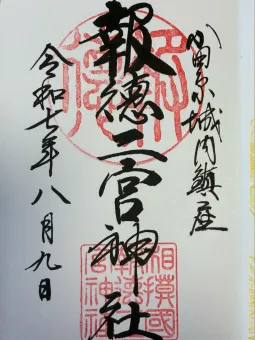 小田原城内鎮座
報徳二宮神社
令和七年八月九日
相模國
報徳二宮
神社